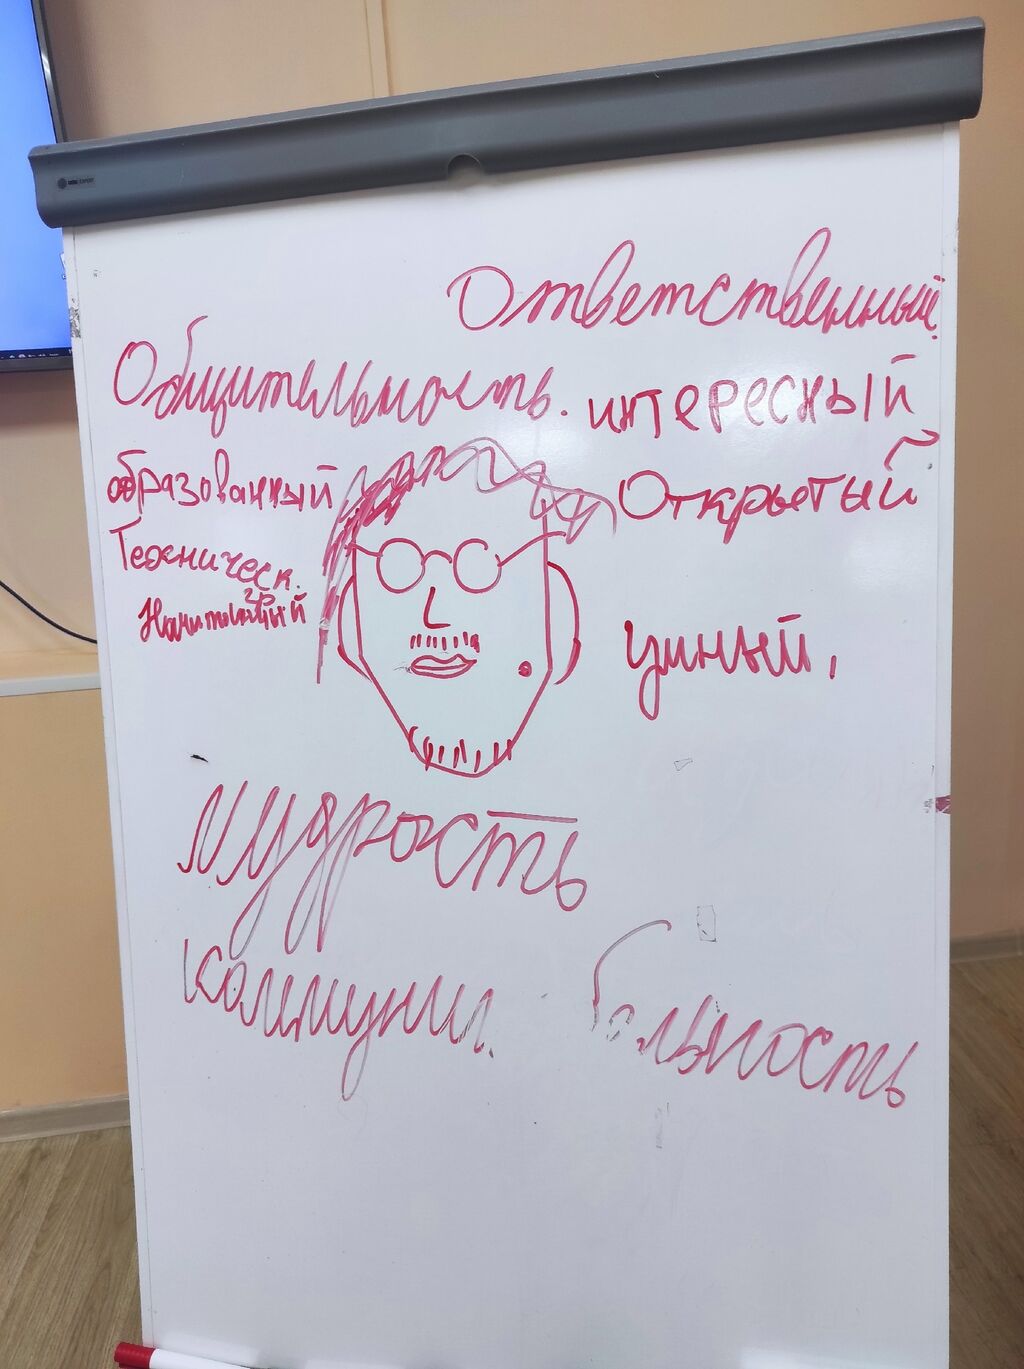 Ответственный
Общительность.
интересный
образованный
Открытый
Техническ.
гр
умный,
Мудрость
коммуник.